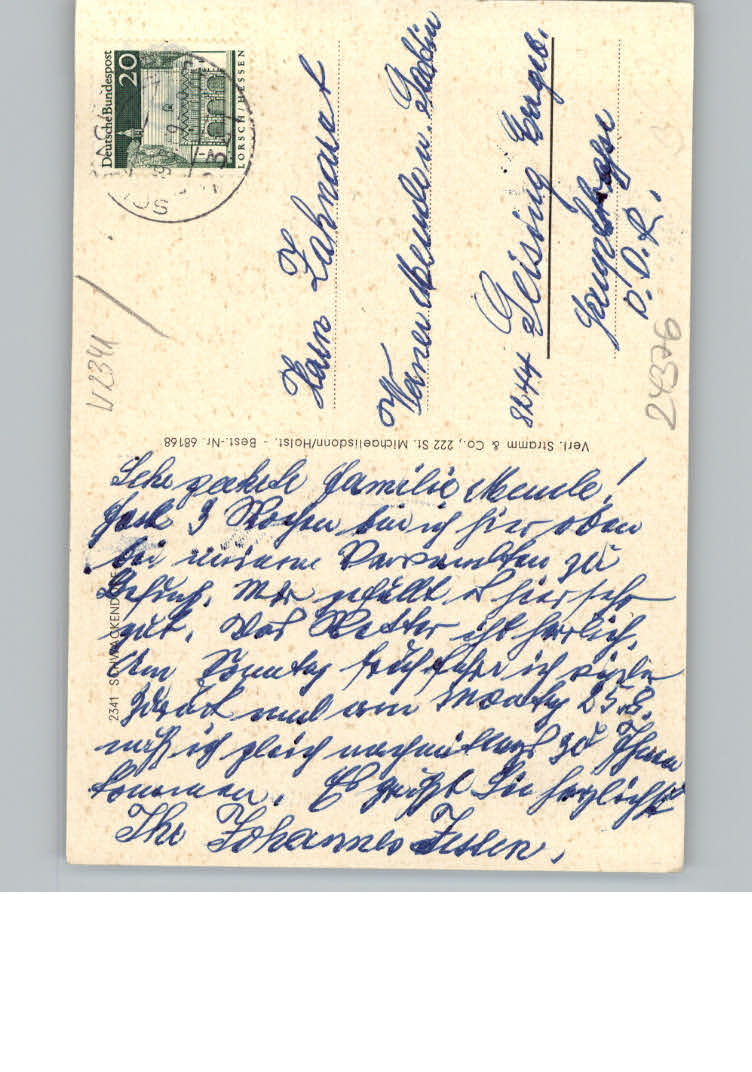 Sehr geehrte Familie Mende!
Fast 3 Wochen bin ich hier oben
bei meinem Verwandten zu
Besuch. Mir gefällt es hier sehr
gut. Das Wetter ist herrlich.
Am Sonntag früh fahre ich wieder
zurück und am Montag 25.8.
muß ich gleich nachmittags zu Ihnen
kommen. Es grüßt Sie herzlichst
Ihr Johannes Jessen.
Herrn Zahnarzt
Werner Mende u. Gattin
8244 Geising Erzgeb.
Hauptstraße
D.D.R.
Deutsche Bundespost
20
LORSCH/HESSEN
Verl. Stramm & Co., 222 St. Michaelisdonn/Holst. - Best.-Nr. 68168
2341 SCHWACKENDORF
V2341
24376